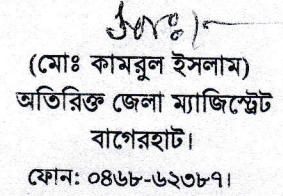 (মোঃ কামরুল ইসলাম)
অতিরিক্ত জেলা ম্যাজিস্ট্রেট
বাগেরহাট।
ফোন: ০৪৬৮-৬২৩৮৭।